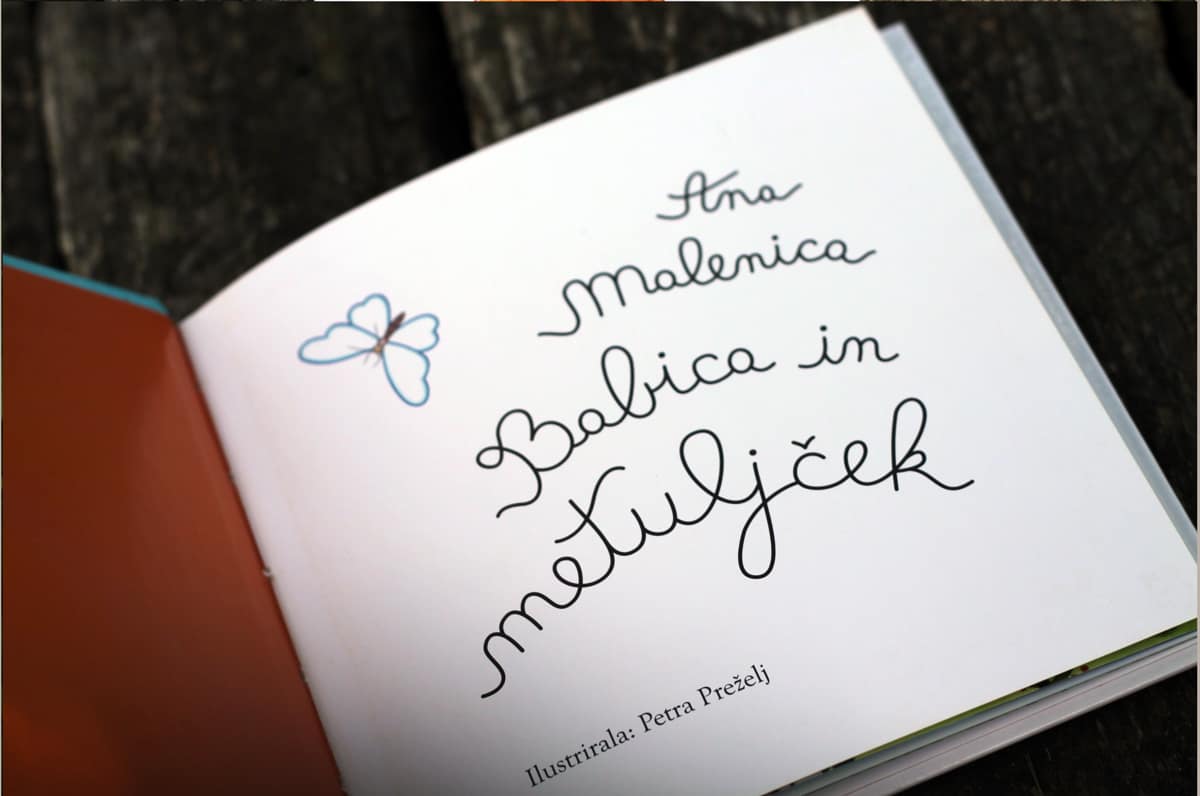 Ana
Malenica
Babica in
metuljček
Ilustrirala: Petra Preželj